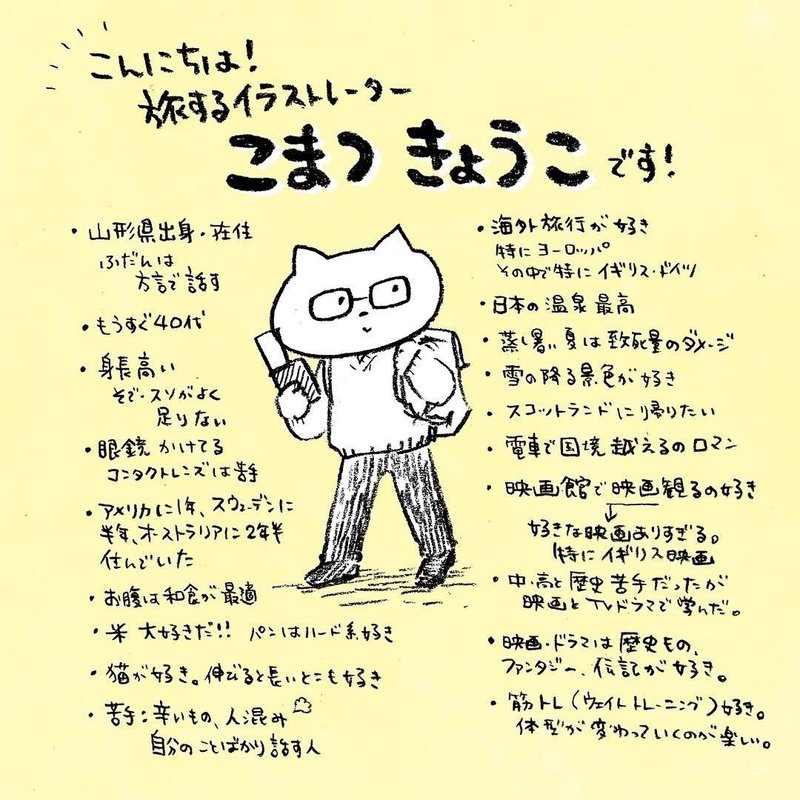 こんにちは！
旅するイラストレーター
こまつ きょうこ です！
・山形県出身・在住
ふだんは
方言で話す
・もうすぐ40代
・身長高い
そで・スソがよく
足りない
・眼鏡かけてる
コンタクトレンズは苦手
・アメリカに1年、スウェーデンに
半年、オーストラリアに2年半
住んでいた
・お腹は和食が最適
・米 大好きだ!! パンはハード系好き
・猫が好き。伸びると長いとこも好き
・苦手：辛いもの、人混み
自分のことばかり話す人
・海外旅行が好き
特にヨーロッパ
その中で特にイギリス・ドイツ
・日本の温泉最高
・蒸し暑い夏は致死量のダメージ
・雪の降る景色が好き
・スコットランドに帰りたい
・電車で国境越えるのロマン
・映画館で映画観るの好き
↓
好きな映画ありすぎる。
特にイギリス映画
・中・高と歴史苦手だったが
映画とTVドラマで学んだ。
・映画・ドラマは歴史もの、
ファンタジー、伝記が好き。
・筋トレ（ウェイトトレーニング）好き。
体型が変わっていくのが楽しい。